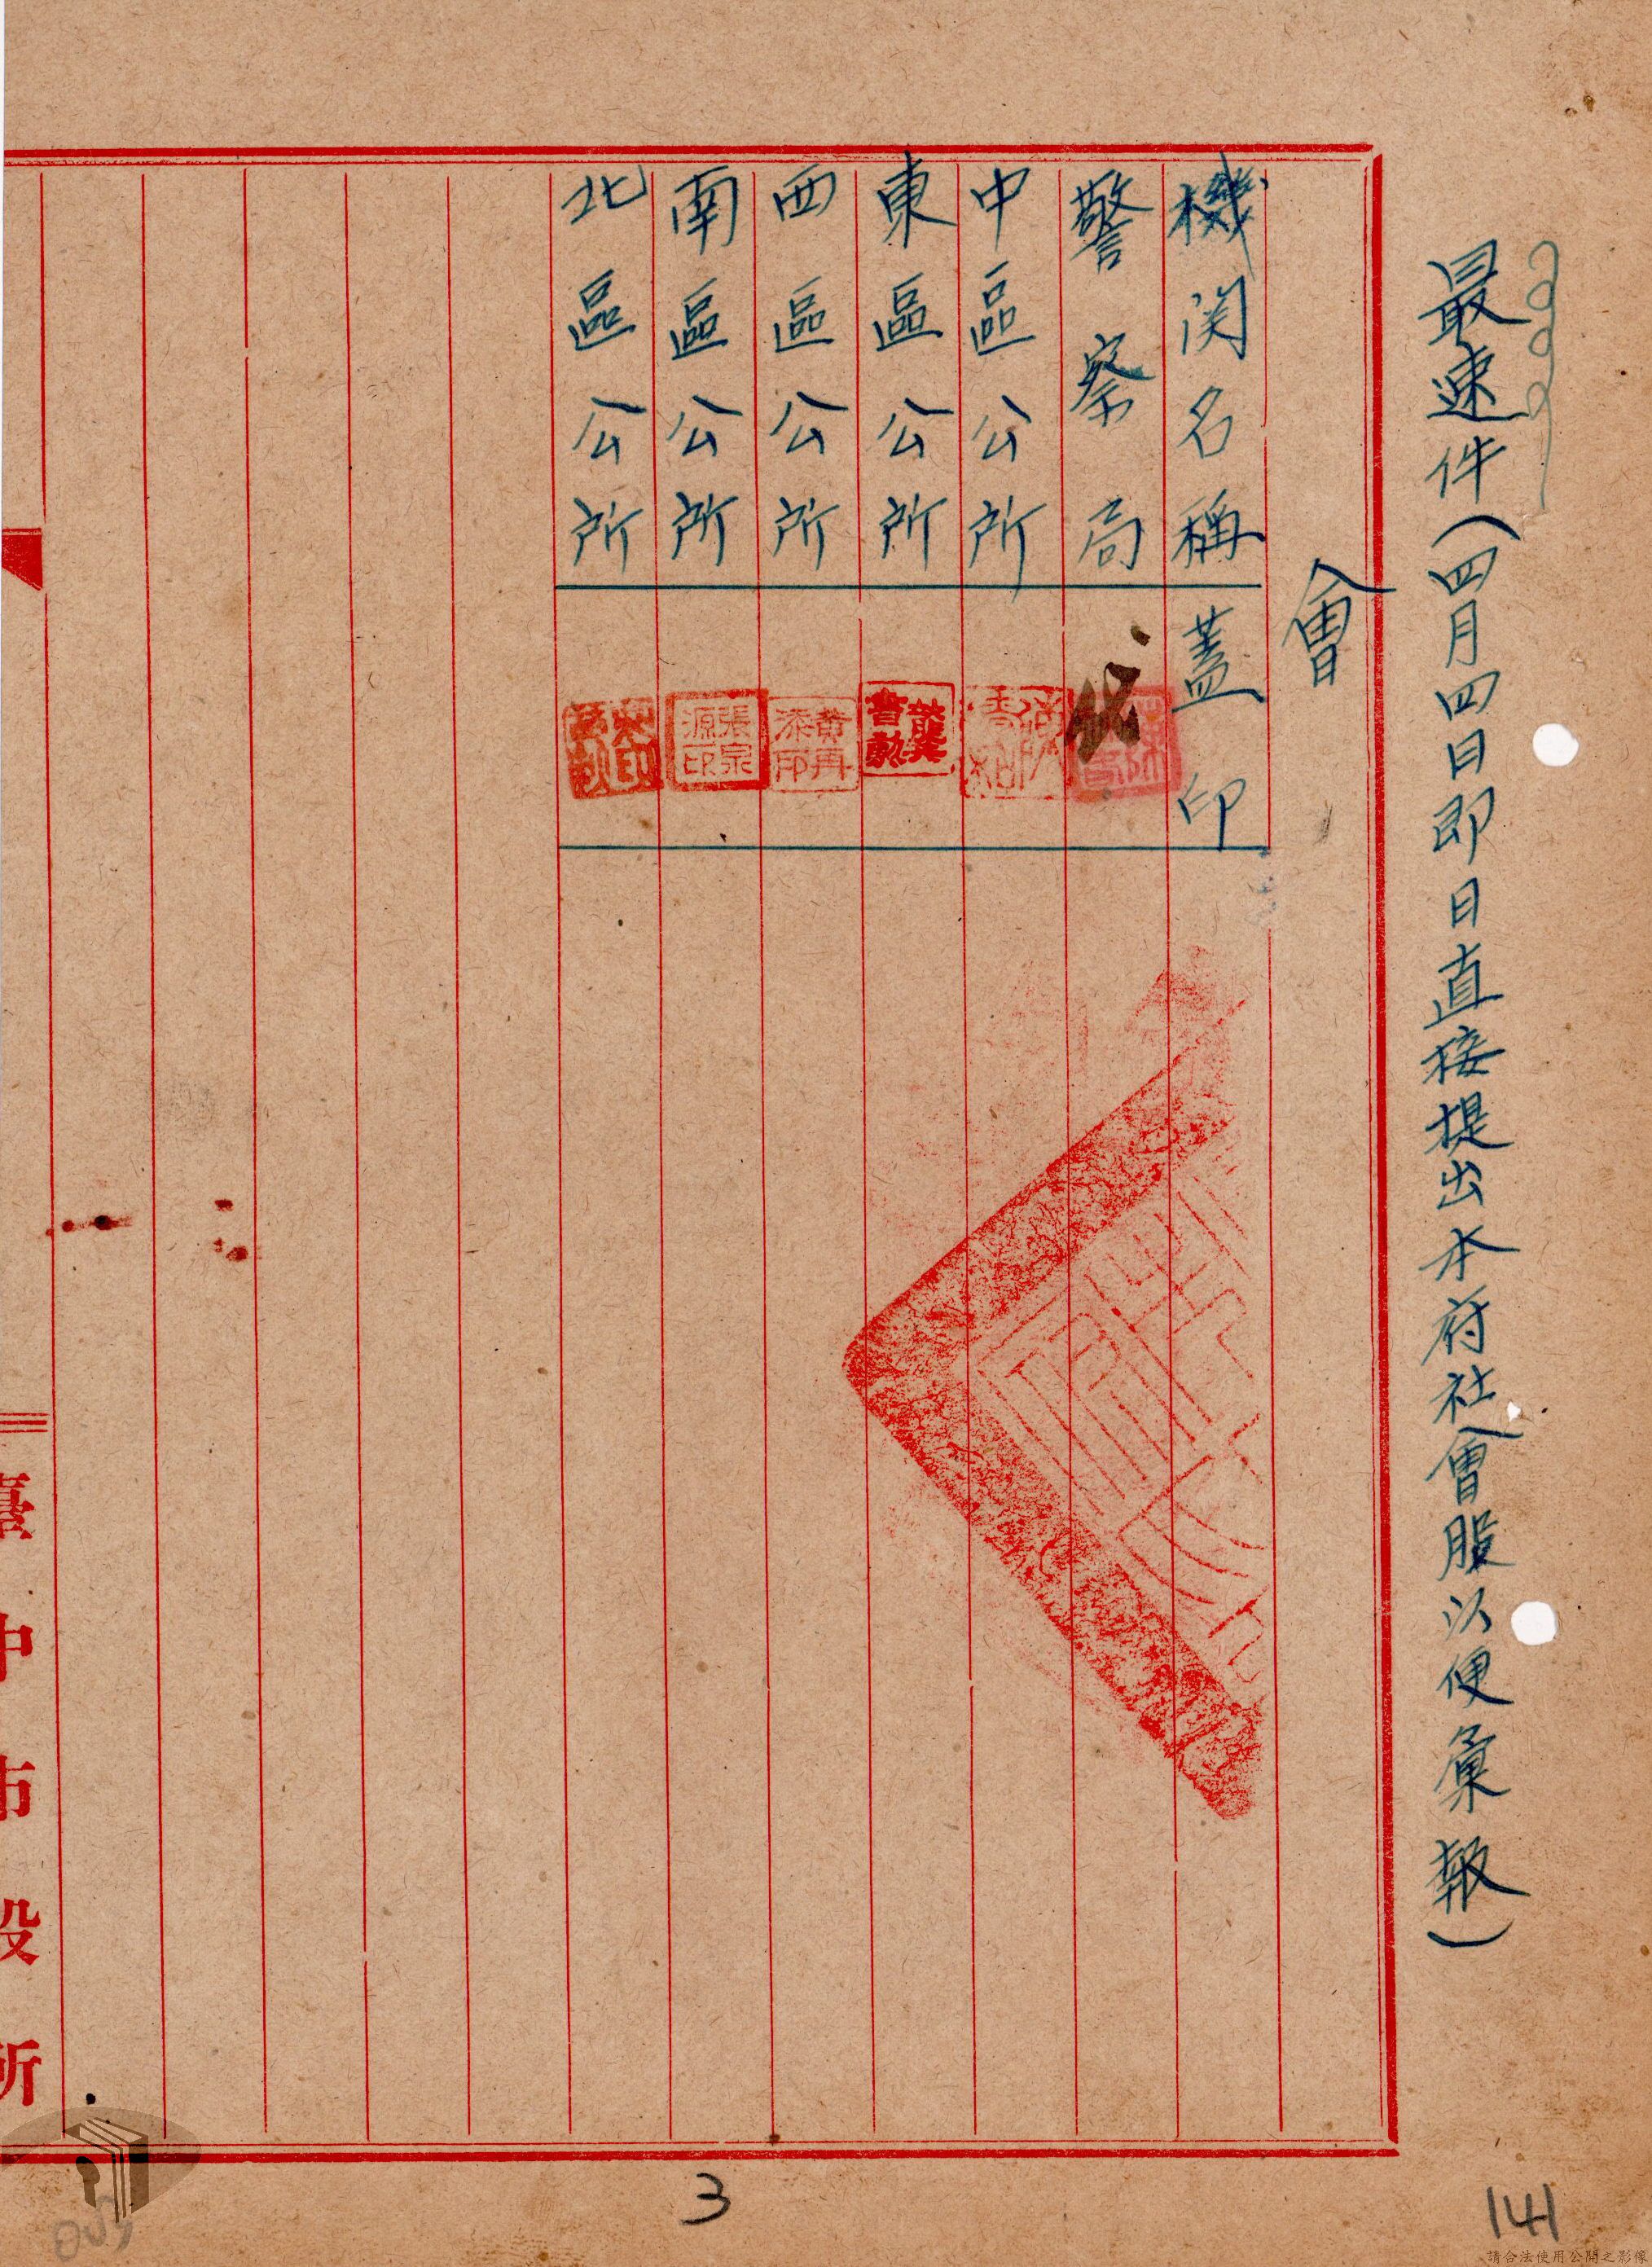 最速件(四月四日即日直接提出本府社會股以便彙報)
會
機関名稱 蓋印
警察局 代
中區公所
東區公所
西區公所 黃再添印
南區公所 張泉源印
北區公所
臺中市役所
3
141
請合法使用公開之影像